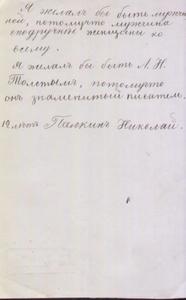 Я желалъ бы быть мужчи
ной, потомучто мужчина
сподручнѣе женщины ко
всему.
Я желалъ бы быть Л. Н.
Толстымъ, потомучто
онъ знаменитый писатель.
12 лѣтъ Палкинъ Николай.